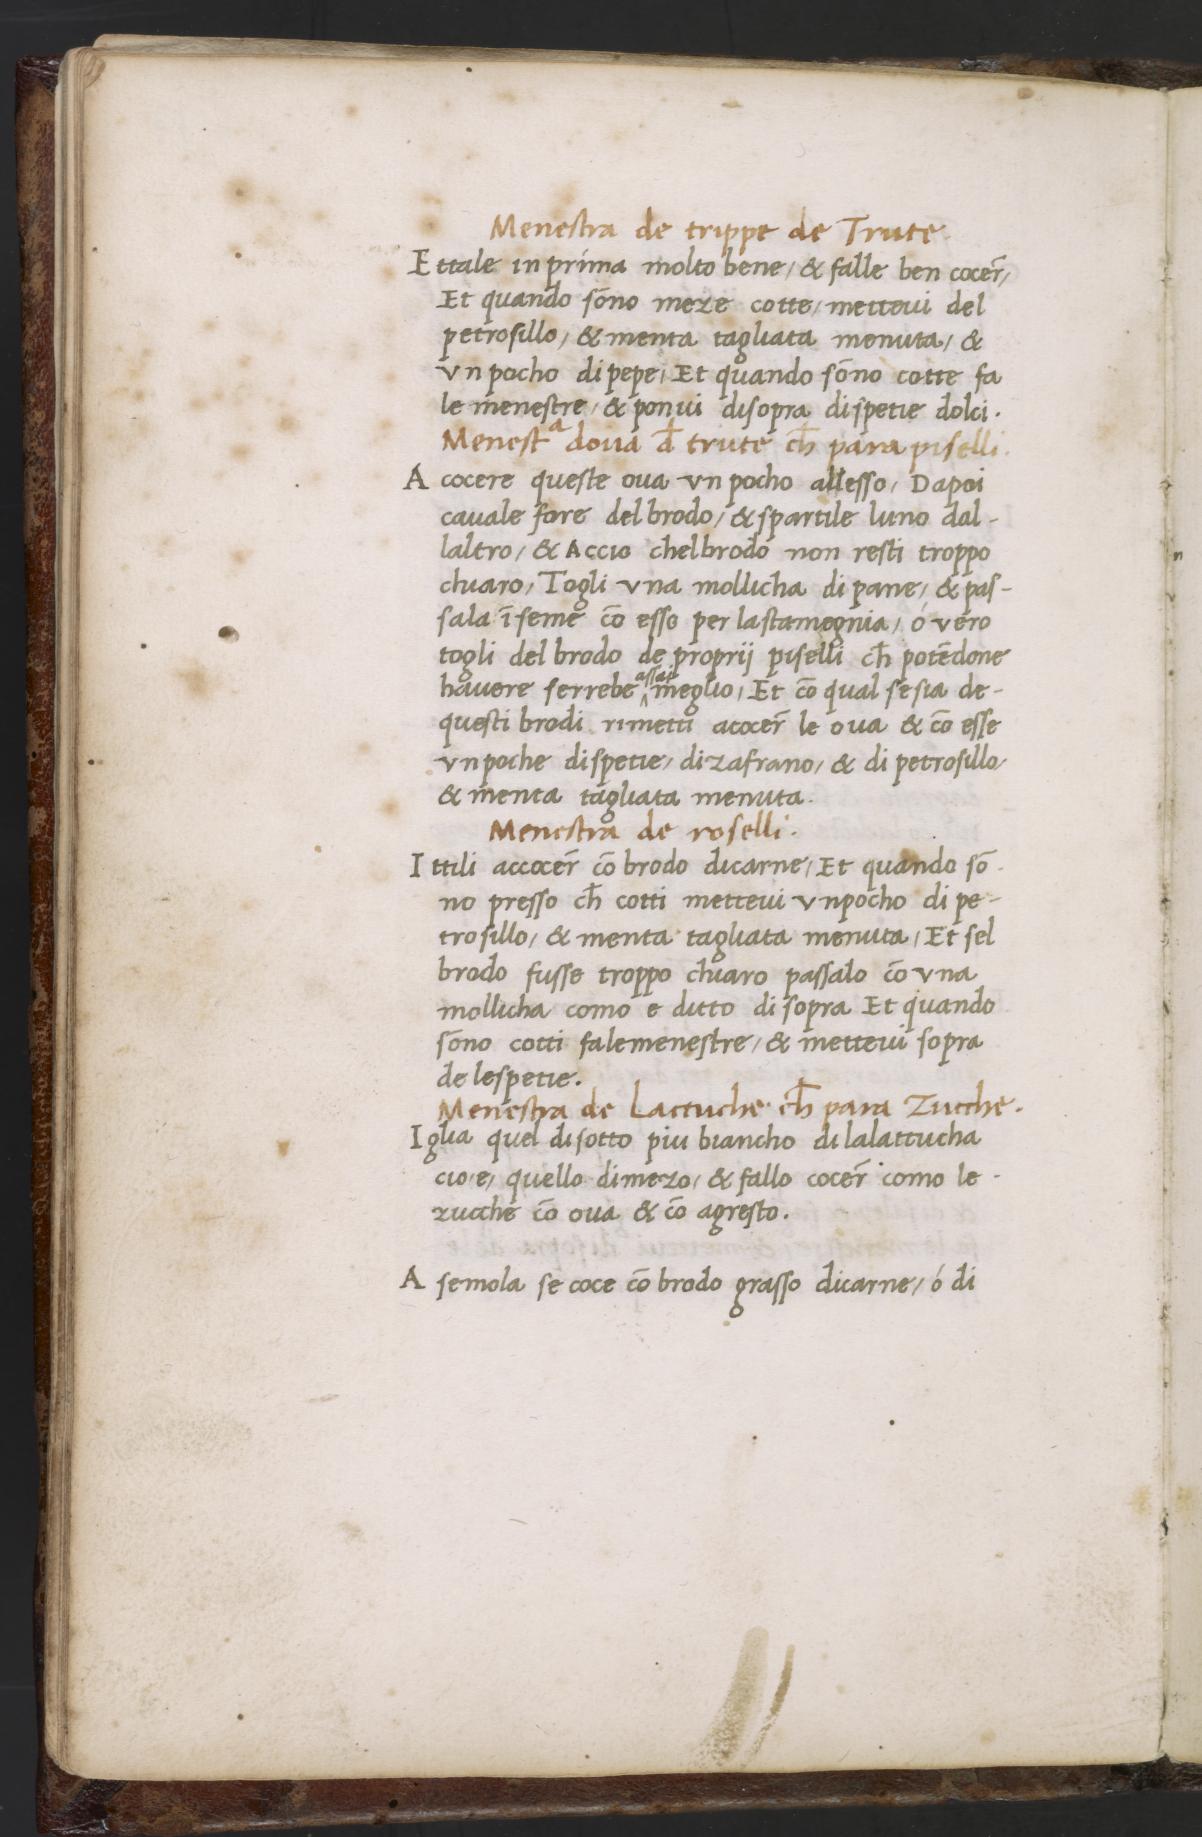 Menestra de trippe de Trute
Ettale in prima molto bene, & falle ben cocer̄,
Et quando sōno meze cotte, mettevi del
petrosillo, & menta tagliata menuta, &
vn pocho di pepe, Et quando sōno cotte fa
le menestre, & ponvi disopra di spetie dolci.
Menestᵃ dova d̄ trute ch̄ para piselli.
A cocere queste ova vn pocho allesso, Dapoi
cavale fore del brodo, & spartile luno dal-
laltro, & Accio chel brodo non resti troppo
chiaro, Togli vna mollicha di pane, & pas-
sala ī seme cō esso per la stamegnia, ó vero
togli del brodo de proprij piselli ch̄ potēdone
havere serrebe assai meglio, Et cō qual se sia de-
questi brodi rimetti acocer̄ le ova & cō esse
vn poche di spetie, di zafrano, & di petrosillo,
& menta tagliata menuta.
Menestra de roselli.
Ittili accocer̄ cō brodo dicarne, Et quando sō-
no presso ch̄ cotti mettevi vn pocho di pe-
trosillo, & menta tagliata menuta, Et sel
brodo fusse troppo chiaro passalo cō vna
mollicha como e ditto di sopra Et quando
sōno cotti fale menestre, & mettevi sopra
de le spetie.
Menestra de Lactuche ch̄ para Zucche.
Iglia quel disotto piu biancho di la lattucha
cio e, quello di mezo, & fallo cocer̄ como le-
zucche cō ova & cō agresto.
A semola se coce cō brodo grasso dicarne, ó di